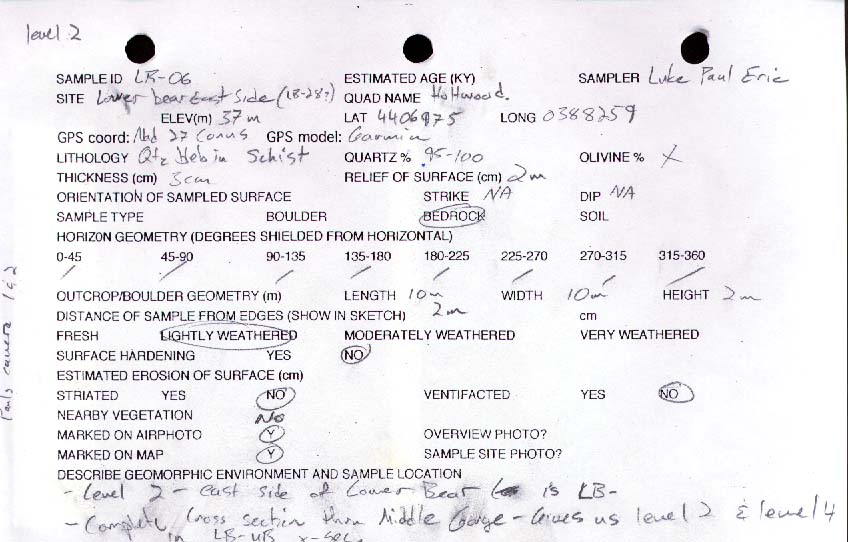 level 2
SAMPLE ID LR-06 ESTIMATED AGE (KY) SAMPLER Luke Paul Eric
SITE Lower bear East Side (LB-28?) QUAD NAME Holtwood.
ELEV(m) 37m LAT 4406975 LONG 0388259
GPS coord: Nad 27 Conus GPS model: Garmin
LITHOLOGY Qtz in Schist QUARTZ % 95-100 OLIVINE % X
THICKNESS (cm) 3cm RELIEF OF SURFACE (cm) 2m
ORIENTATION OF SAMPLED SURFACE STRIKE NA DIP NA
SAMPLE TYPE BOULDER BEDROCK SOIL
HORIZON GEOMETRY (DEGREES SHIELDED FROM HORIZONTAL)
0-45 45-90 90-135 135-180 180-225 225-270 270-315 315-360
/ / / / / / / /
OUTCROP/BOULDER GEOMETRY (m) LENGTH 10m WIDTH 10m HEIGHT 2m
DISTANCE OF SAMPLE FROM EDGES (SHOW IN SKETCH) 2m cm
FRESH LIGHTLY WEATHERED MODERATELY WEATHERED VERY WEATHERED
SURFACE HARDENING YES NO
ESTIMATED EROSION OF SURFACE (cm)
STRIATED YES NO VENTIFACTED YES NO
NEARBY VEGETATION No
MARKED ON AIRPHOTO Y OVERVIEW PHOTO?
MARKED ON MAP Y SAMPLE SITE PHOTO?
DESCRIBE GEOMORPHIC ENVIRONMENT AND SAMPLE LOCATION
- Level 2 - east side of Lower Bear is LB-
- Complete Cross section thru Middle Gorge - Gives us level 2 & level 4
in LB-UB x-sec.
Pauls camera 1&2